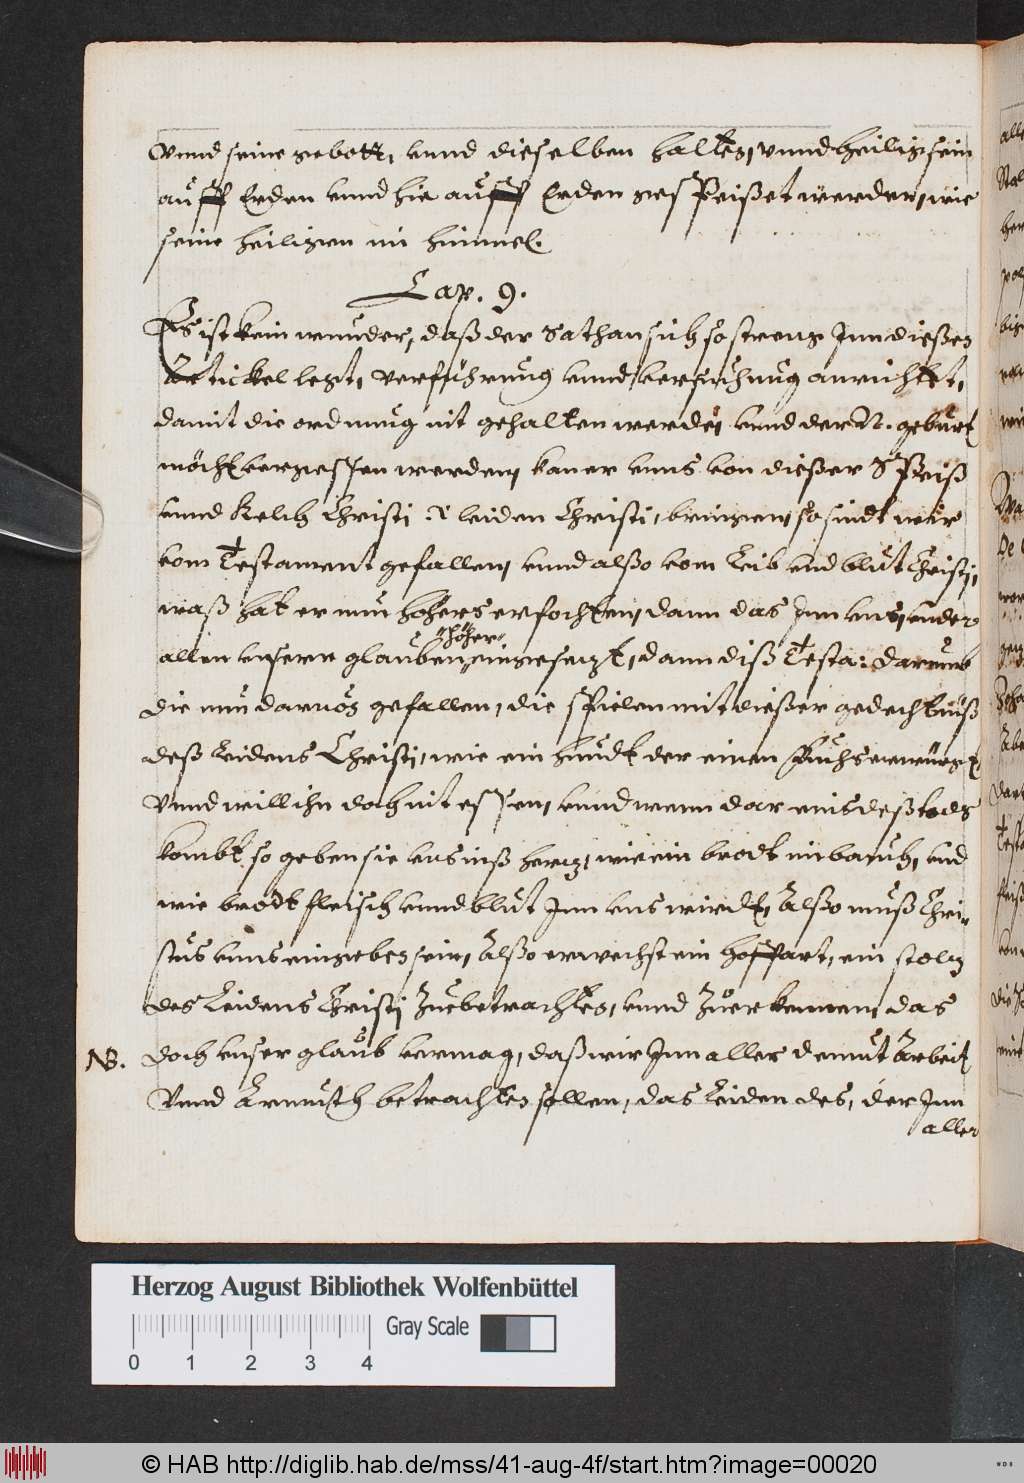 Vnnd seine gebott, vnnd dieselben halten, vnnd heilig sein
auff Erden vnnd hie auff Erden gespeißet werden, wie
seine heiligen im himmel.
Cap. 9.
Es ist kein wunder, daß der Sathan sich so streng Inn dießen
Artickel legt, verführung vnnd versuchung anrichtet,
damit die ordnung nit gehalten werde, vnnd der N. geburt
möcht vergessen werden, kan er vnns von dießer Speiß
vnnd Kelch Christi leiden Christi, bringen, so sindt wir
vom Testament gefallen, vnnd alßo vom Leib vnd blut Christi,
waß hat er nun höhers erfochten, dann das Inn vns, vnder
"höher"
allen vnsern glauben eingesezt, dann diß Testa: darumb
die nun darvon gefallen, die spielen mit dießer gedechtnüß
deß Leidens Christi, wie ein hundt der einen Fuchs erwürgt,
Vnnd will ihn doch nit essen, vnnd wenn dar eins deß tods
kombt, so geben sie vns inß herz, wie ein brodt im bauch, vnd
wie brodt fleisch vnnd blut Inn vns wirdt, Alßo muß Chri-
stus vnns eingeben sein, Alßo erwechst ein hoffart, ein stolz
des Leidens Christi Zuebetrachten, vnnd Zuerkennen, das
NB. doch vnser glaub vermag, daß wir Inn aller demut Arbeit
Vnnd Armuth betrachten sollen, das Leiden des, der Inn
aller
Herzog August Bibliothek Wolfenbüttel
0 1 2 3 4 Gray Scale
© HAB http://diglib.hab.de/mss/41-aug-4f/start.htm?image=00020